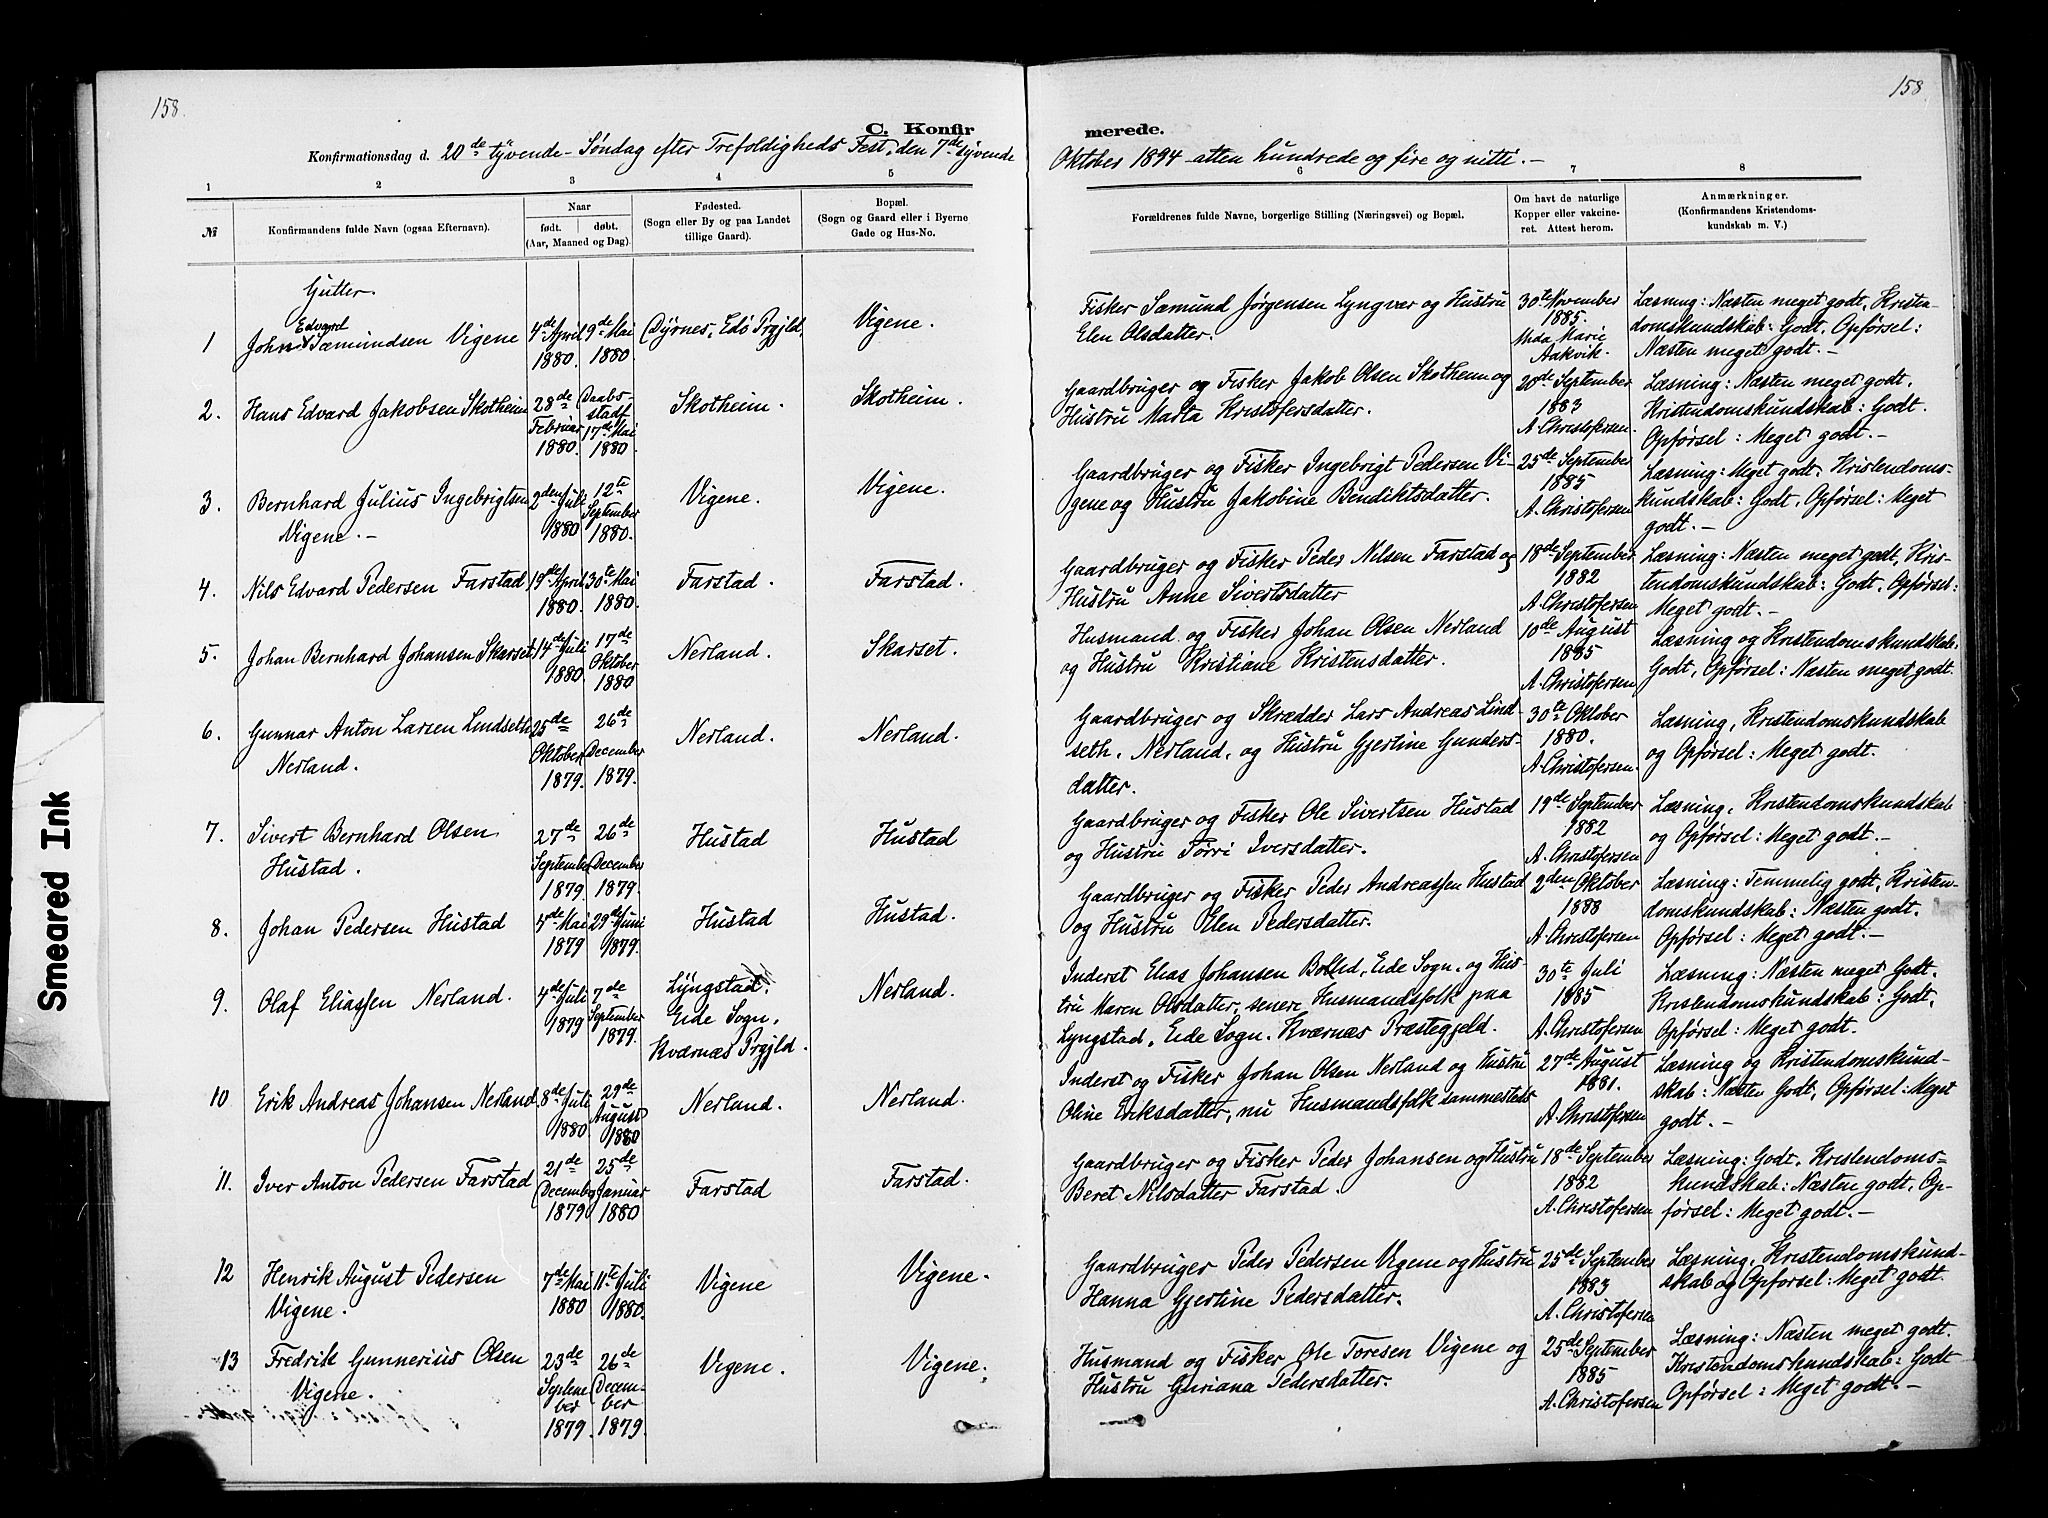 158.
158
C. Konfir
merede.
Konfirmationsdag d. 20de tyvende Søndag efter Trefoldigheds Fest, den 7de syvende
Oktober 1894 - atten hundrede og fire og nitti. -
1 2 3 4 5
6 7 8
№
Konfirmandens fulde Navn (ogsaa Efternavn).
Naar
født. døbt.
(Aar, Maaned og Dag).
Fødested.
(Sogn eller By og paa Landet
tillige Gaard).
Bopæl.
(Sogn og Gaard eller i Byerne
Gade og Hus-No.
Forældrenes fulde Navne, borgerlige Stilling (Næringsvei) og Bopæl.
Om havt de naturlige
Kopper eller vakcine-
ret. Attest herom.
Anmærkninger.
(Konfirmandens Kristendoms-
kundskab m. V.)
Gutter.
1
John Edvard Sæmundsen Vigene
4de April
1880.
9de Mai
1880.
Dyrnes, Edø Prgjld.
Vigene.
Fisker Sæmund Jørgensen Lyngvær og Hustru
Elen Olsdatter.
30te November
1885.
Marie
Aakvik.
Læsning: Næsten meget godt, Kristen-
domskundskab: Godt, Opførsel:
Næsten meget godt. -
2.
Hans Edvard Jakobsen Skotheim
28de
Februar
1880.
Daabs-
stadf
17de Mai
1880.
Skotheim.
Skotheim.
Gaardbruger og Fisker Jakob Olsen Skotheim og
Hustru Marta Kristofersdatter.
20de September
1883
A. Christofersen.
Læsning: Næsten meget godt.
Kristendomskundskab: Godt.
Opførsel: Meget godt. -
3.
Bernhard Julius Ingebrigtsen
Vigene. -
2den Juli
1880
12te
September
1880.
Vigene.
Vigene.
Gaardbruger og Fisker Ingebrigt Pedersen Vi-
gene og Hustru Jakobine Bendiktsdatter.
25de September
1885
A. Christofersen
Læsning: Meget godt. Kristendoms-
kundskab: Godt, Opførsel: Meget
godt. -
4.
Nils Edvard Pedersen Farstad
19de April
1880.
30te Mai
1880.
Farstad.
Farstad.
Gaardbruger og Fisker Peder Nilsen Farstad og
Hustru Anne Sivertsdatter
18de September
1882
A. Christofersen
Læsning: Næsten meget godt, Kris-
tendomskundskab: Godt, Opførsel:
Meget godt. -
5.
Johan Bernhard Johansen Skarset
14de Juli
1880
17de
Oktober
1880
Nerland.
Skarset.
Husmand og Fisker Johan Olsen Nerland
og Hustru Kristiane Kristensdatter.
10de August
1885
A. Christofersen
Læsning og Kristendomskundskab:
Godt, Opførsel: Næsten meget godt.
6.
Gunnar Anton Larsen Lindseth
Nerland.
25de
Oktober
1879.
26de
December
1879.
Nerland.
Nerland.
Gaardbruger og Skrædder Lars Andreas Lind-
seth, Nerland, og Hustru Gjertine Gunders-
datter.
30te Oktober
1880.
A. Christofersen.
Læsning, Kristendomskundskab
og Opførsel: Meget godt.
7.
Sivert Bernhard Olsen
Hustad.
27de
September
1879
26de
December
1879.
Hustad
Hustad
Gaardbruger og Fisker Ole Sivertsen Hustad
og Hustru Tørri Iversdatter.
19de September
1882
A. Christofersen
Læsning, Kristendomskundskab
og Opførsel: Meget godt. -
8.
Johan Pedersen Hustad
4de Mai
1879
29de Juni
1879.
Hustad
Hustad.
Gaardbruger og Fisker Peder Andreassen Hustad
og Hustru Elen Pedersdatter.
2den Oktober
1888
A. Christofersen
Læsning: Temmelig godt, Kristen-
domskundskab: Næsten godt.
Opførsel: Meget godt. -
9.
Olaf Eliassen Nerland.
4de Juli
1879
7de
September
1879.
Lyngstad,
Eide Sogn,
Kværnæs Prgjld.
Nerland.
Inderst Elias Johansen Eide Sogn, og Hus-
tru Maren Olsdatter, senere Husmandsfolk paa
Lyngstad, Eide Sogn. Kværnæs Præstegjeld.
30te Juli
1885
A. Christofersen
Læsning: Næsten meget Godt.
Kristendomskundskab: Godt,
Opførsel: Meget godt.
10
Erik Andreas Johansen Nerland
8de Juli
1880
29de
August
1880
Nerland.
Nerland.
Inderst og Fisker Johan Olsen Nerland og Hustru
Oline Eriksdatter, nu Husmandsfolk sammesteds
27de August
1881.
A. Christofersen
Læsning og Kristendomskund-
skab: Næsten Godt, Opførsel: Meget
godt. -
11.
Iver Anton Pedersen Farstad
21de
December
1879
25de
Januar
1880
Farstad
Farstad.
Gaardbruger og Fisker Peder Johansen og Hustru
Beret Nilsdatter Farstad.
18de September
1882
A. Christofersen
Læsning: Godt. Kristendoms-
kundskab: Næsten godt. Op-
førsel: Meget godt. -
12
Henrik August Pedersen
Vigene.
7de Mai
1880
11te Juli
1880.
Vigene
Vigene.
Gaardbruger Peder Pedersen Vigene og Hustru
Hanna Gjertine Pedersdatter.
25de September
1883
A. Christofersen
Læsning, Kristendomskund-
skab og Opførsel: Meget godt.
13
Fredrik Gunnerius Olsen
Vigene.
23de
Septem-
ber
1879.
26de
Decem-
ber
1879.
Vigene.
Vigene.
Husmand og Fisker Ole Toresen Vigene og
Hustru Guriana Pedersdatter.
25de September
1885
A. Christofersen
Læsning: Næsten meget godt.
Kristendomskundskab: Godt
Opførsel: Meget godt. -
Smeared Ink